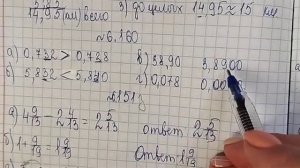 14,95 (км) всего 3) до целых 14,95 ≈ 15 км
№ 6.160
а) 0,732 > 0,738 в) 3,890 3,8900
б) 5,832 < 5,840 г) 0,078 0,00
№ 6.151 г
а) 4 9/13 - 2 4/13 = 2 5/13 ответ 2 5/13
б) 1 + 9/19 = 1 9/19 Ответ 1 9/19